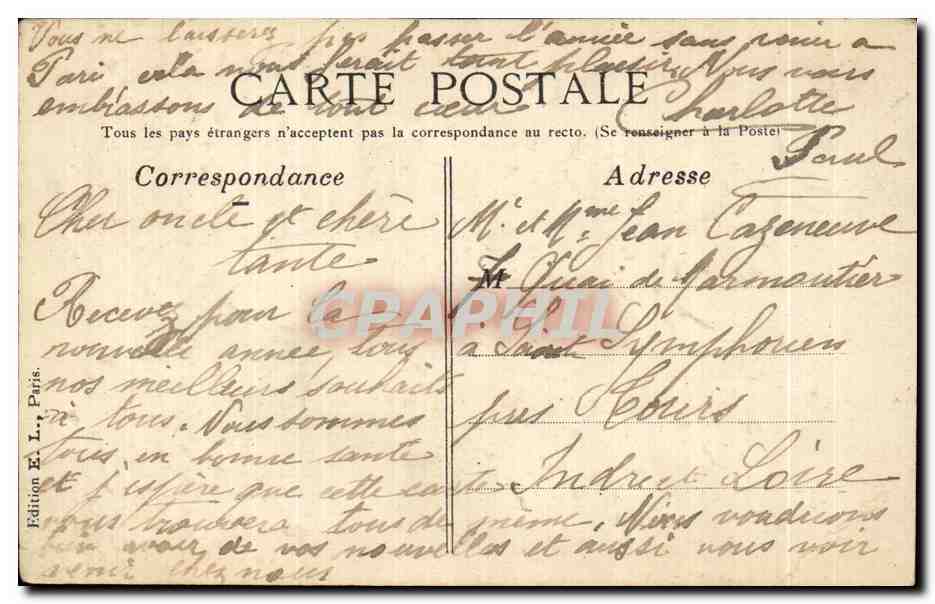 Vous ne laisserez pas passer l'année sans venir a
Paris cela nous ferait tant plaisir Nous vous
embrassons de tout cœur Charlotte
Paul
CARTE POSTALE
Tous les pays étrangers n'acceptent pas la correspondance au recto. (Se renseigner à la Poste)
Correspondance
Cher oncle et chère
tante
Recevez pour la
nouvelle année, tous
nos meilleurs souhaits
à tous. Nous sommes
tous en bonne santé
et j'espère que cette carte
vous trouvera tous de même. Nous voudrions
bien avoir de vos nouvelles et aussi vous voir
venir chez nous
Adresse
Mr et Mme Jean Cazeneuve
M Quai de Marmoutier
à Saint Symphorien
près Tours
Indre et Loire
Edition E. L., Paris.
CPAPHIL